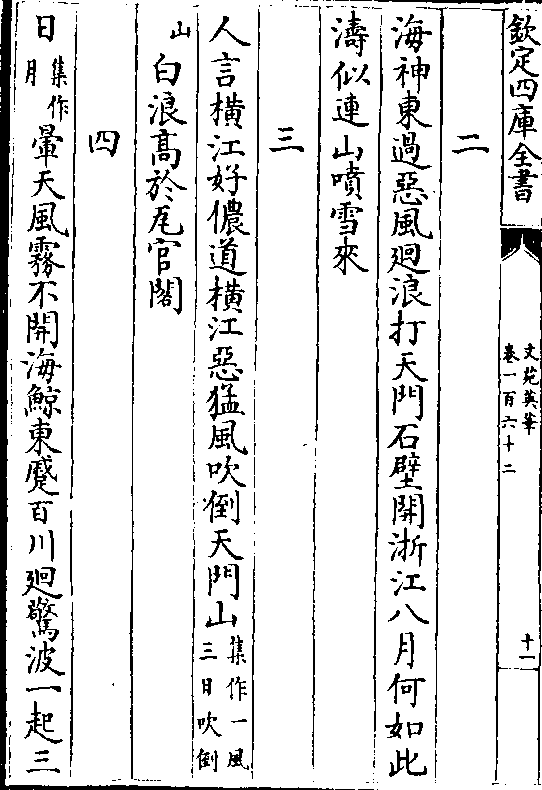 欽定四庫全書
文苑英華
卷一百六十二
十一
二
海神東過惡風廻浪打天門石壁開浙江八月何如此
濤似連山噴雪來
三
人言橫江好儂道橫江惡猛風吹倒天門山集作一風三日吹倒
山白浪高於瓦官閣
四
日集作月暈天風霧不開海鯨東蹙百川廻驚波一起三